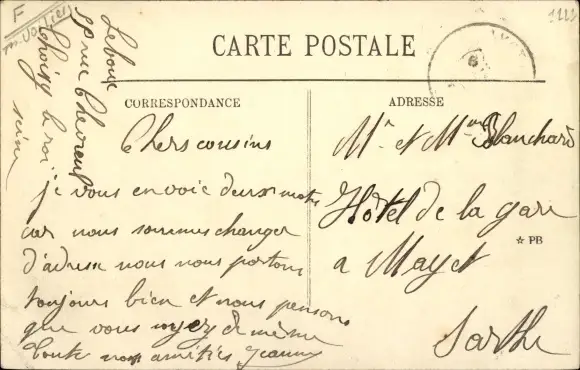 F
CARTE POSTALE
CORRESPONDANCE
ADRESSE
Leboux
rue Chevreul
Choisy le roi
seine
Chers cousins
je vous envoie deux mots
car nous sommes changer
d'adresse nous nous portons
toujours bien et nous pensons
que vous soyez de même
toute nos amitiés Jeanne
Mr et Mme Blanchard
Hôtel de la gare
a Mayet
Sarthe
☆ PB